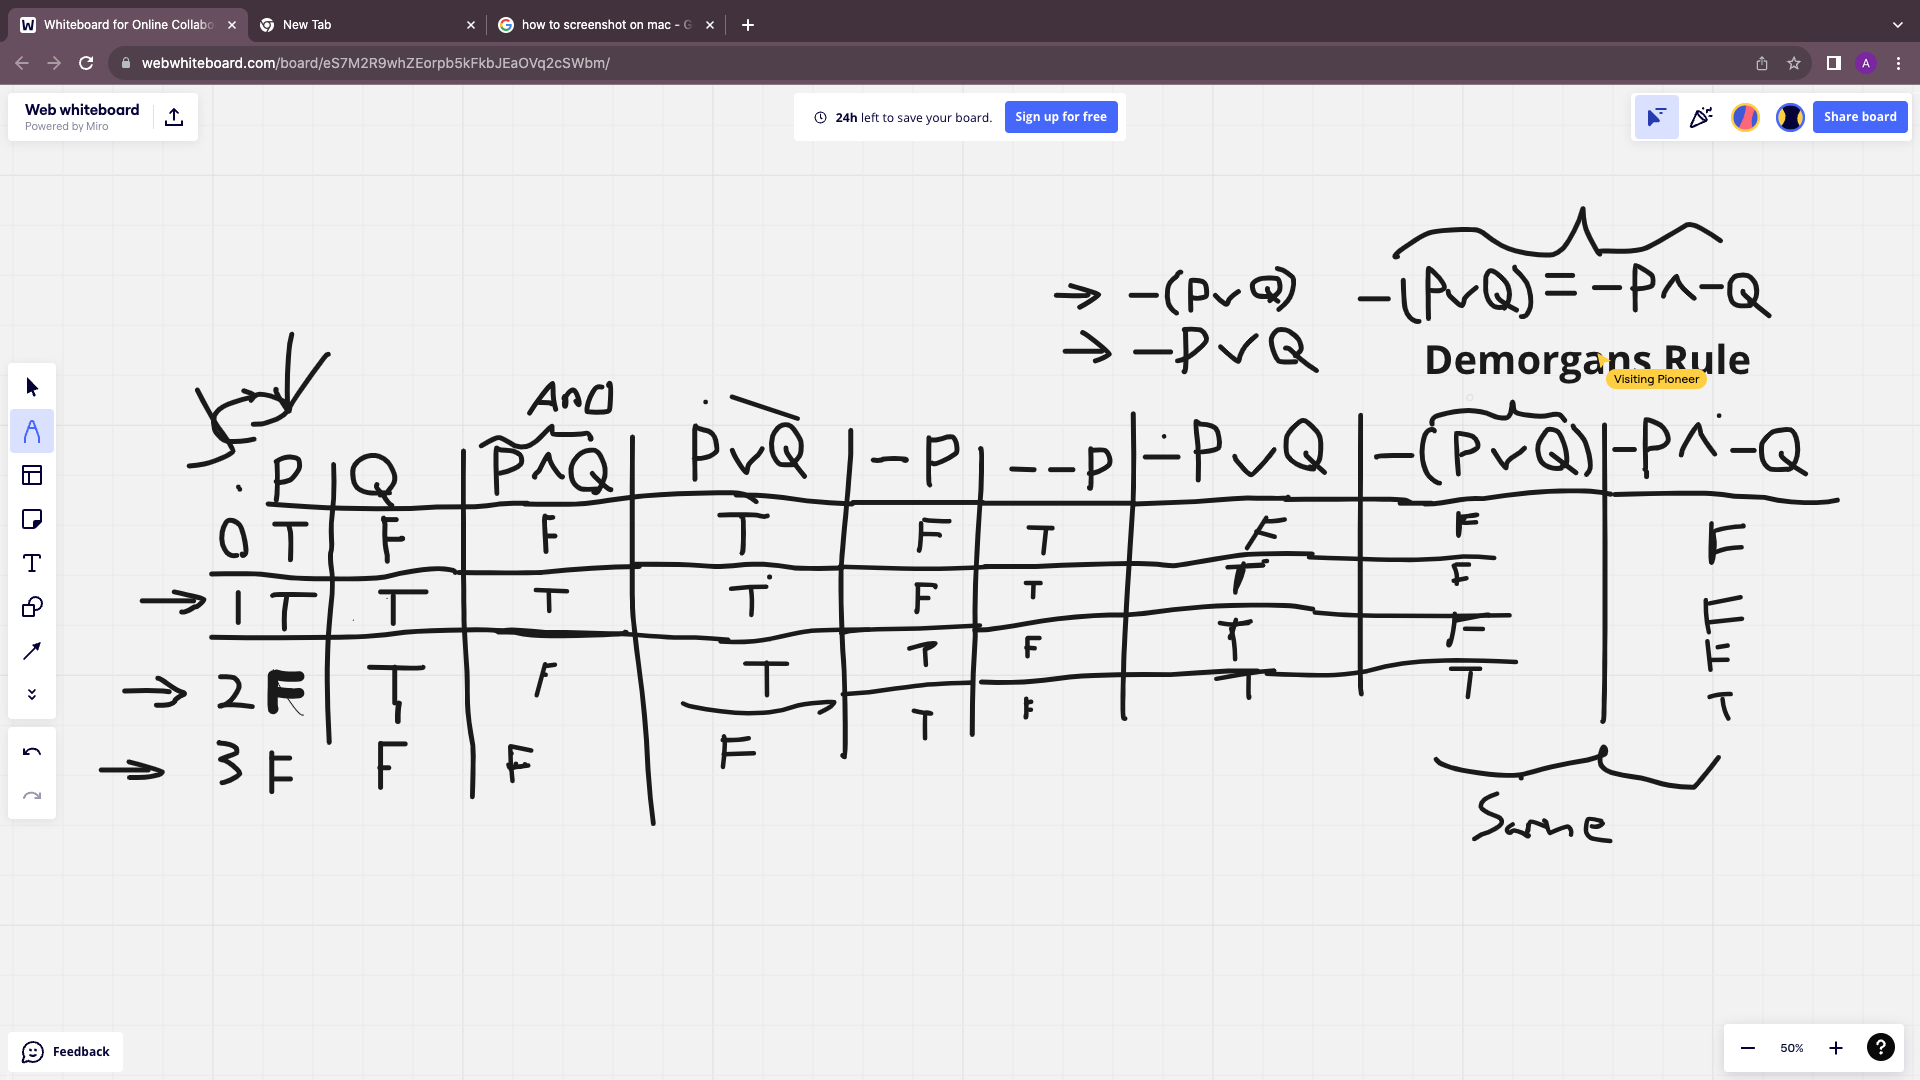 Whiteboard for Online Collabo
New Tab
how to screenshot on mac - G
webwhiteboard.com/board/eS7M2R9whZEorpb5kFkbJEaOVq2cSWbm/
A
Web whiteboard
Powered by Miro
24h left to save your board.
Sign up for free
Share board
→ -(P∨Q)
-(P∨Q) = -P∧-Q
→ -P∨Q
Demorgans Rule
Visiting Pioneer
AND
P Q P∧Q P∨Q -P --P -P∨Q -(P∨Q) -P∧-Q
0 T F F T F T F F F
→ 1 T T T T F T T F F
→ 2 F T F T T F T F F
→ 3 F F F F T F T T T
Same
Feedback
50%
?